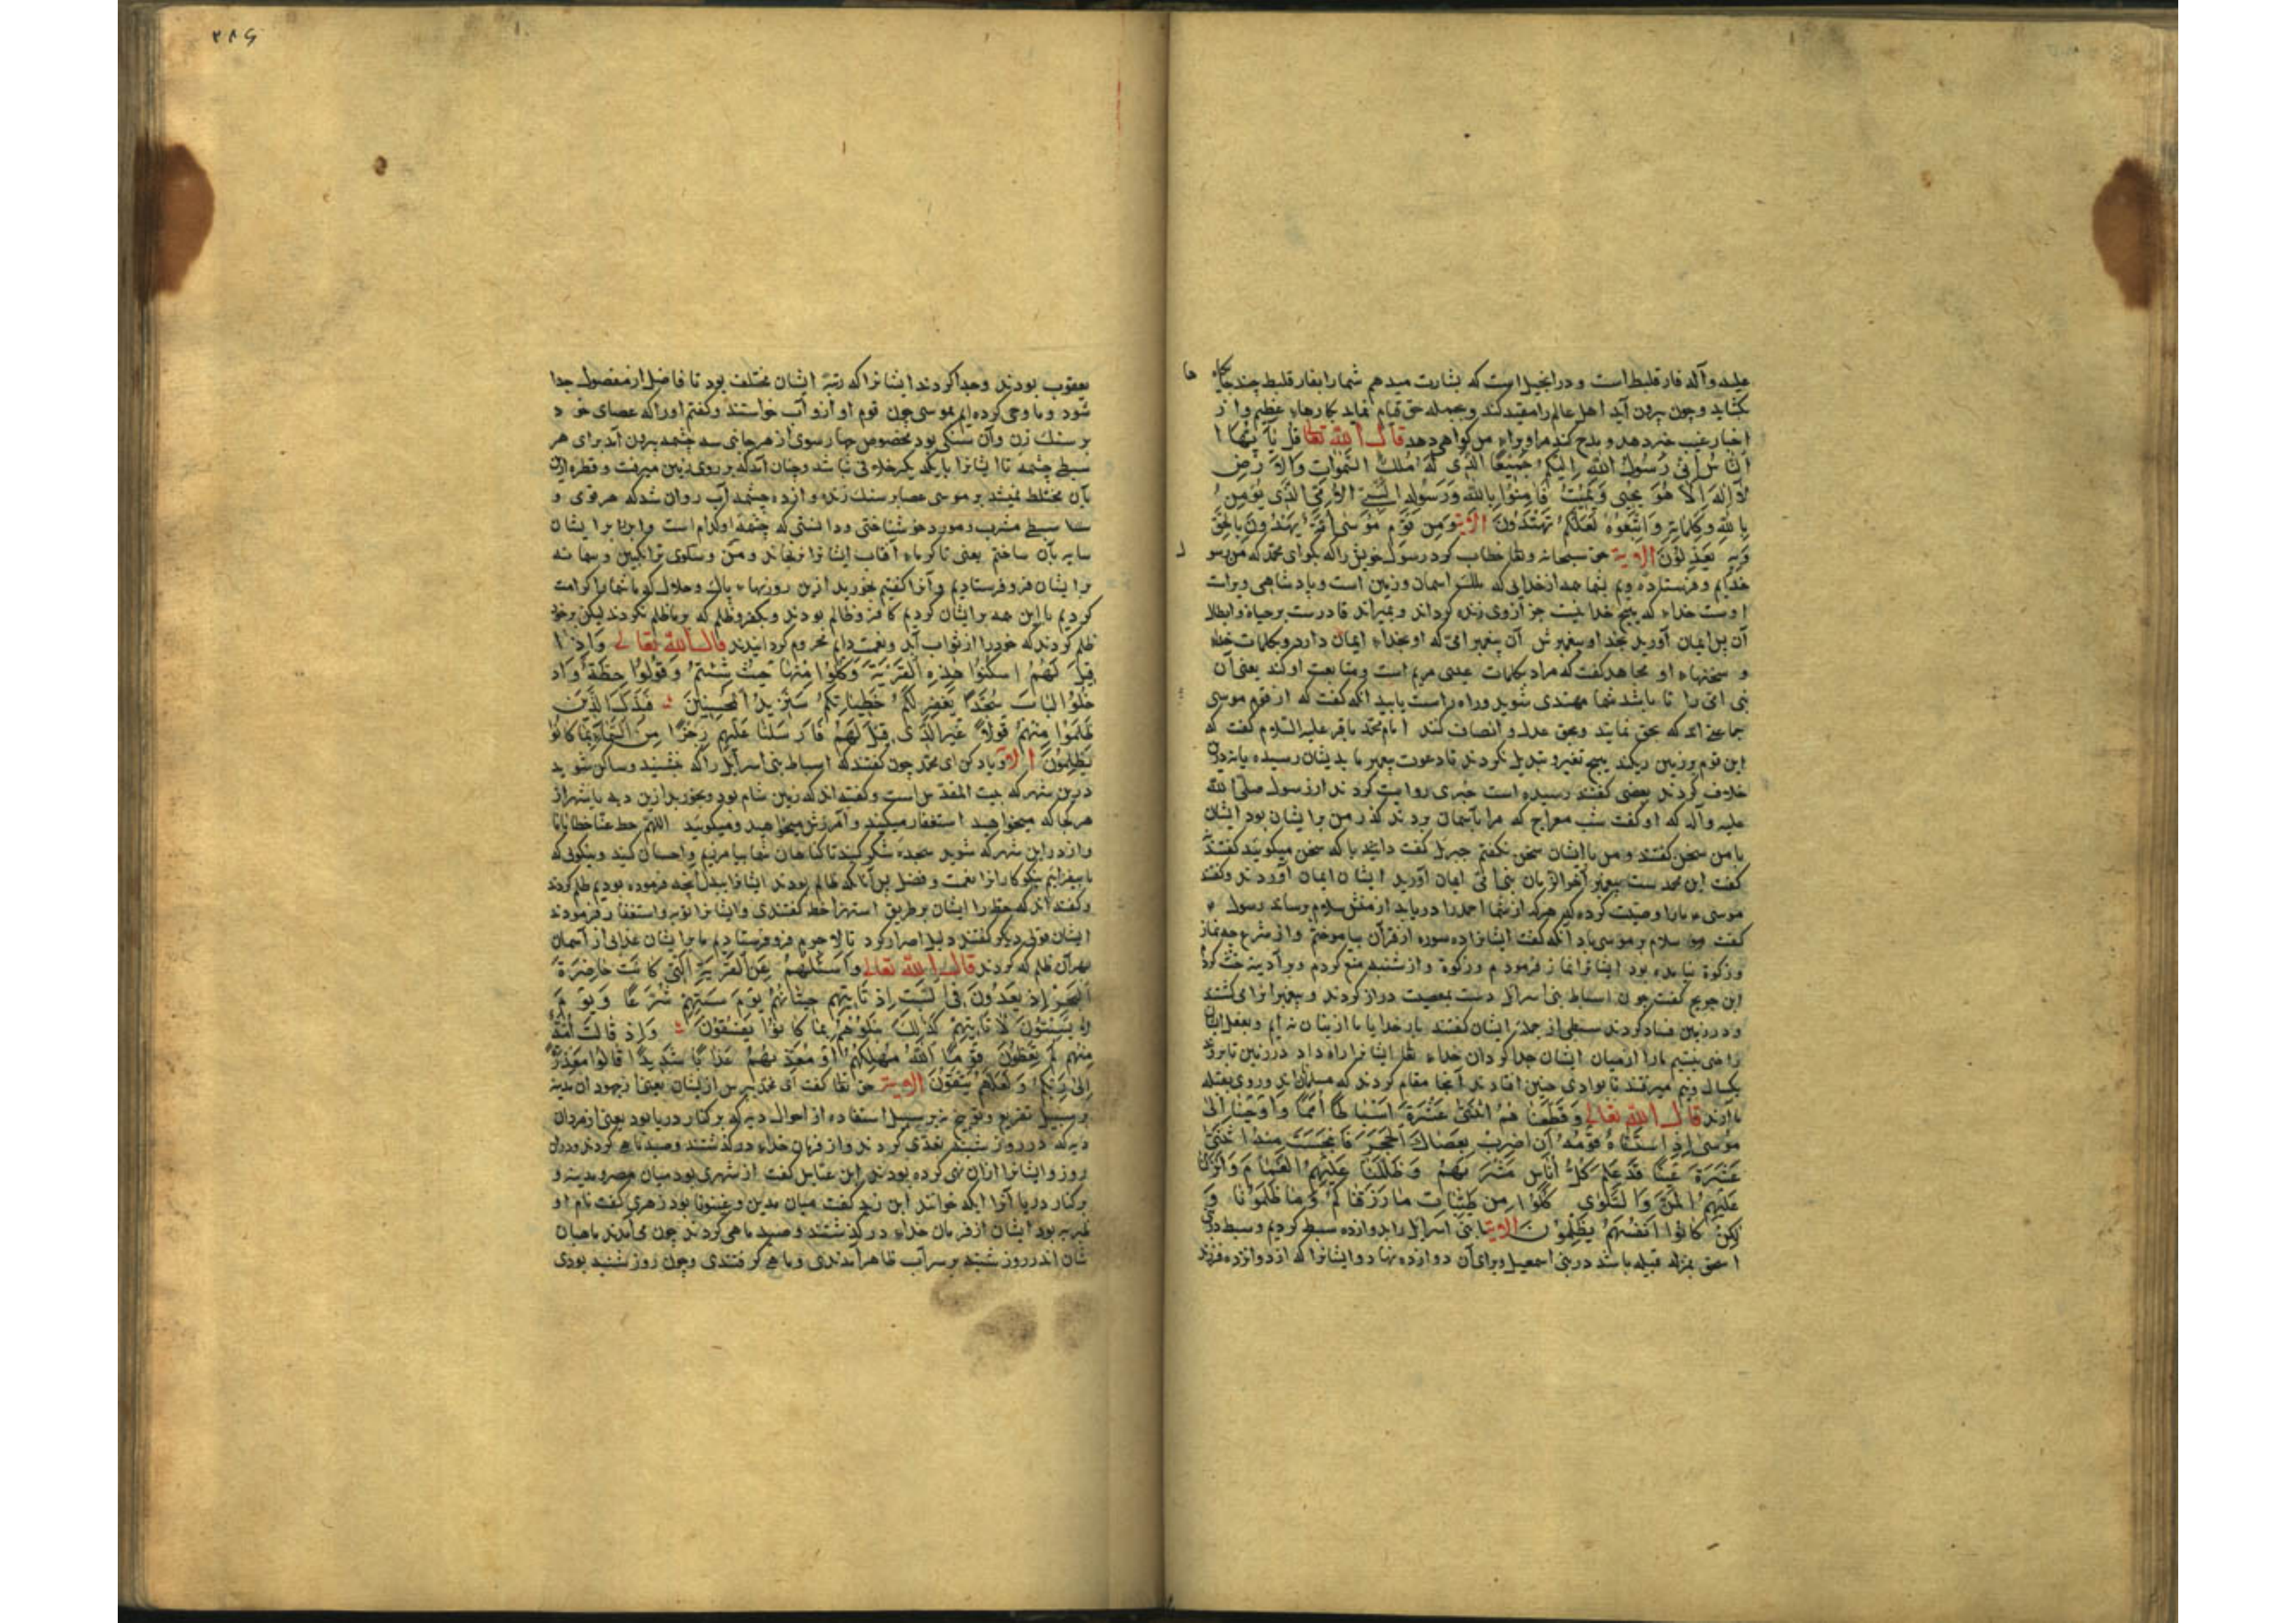 علیه وآله فارقلیط است و در انجیل است که بشارت میدهم شما را بفارقلیط چند جایگاه ها
بکشاید و چون بیرون آید اهل عالم را مقید کند و بجمله حق قیام نماید بکارهاء عظیم و از
اخبار غیب خبر دهد و مدح کند مرا و براء من گواهی دهد قال الله تعالی قُل یَا اَیُّهَا ا
النَّاسُ اِنّی رَسُولُ اللهِ اِلَیکُم جَمیعًا الَّذی لَهُ مُلکُ السَّمواتِ وَالاَرضِ
لا اِلهَ اِلاّ هُوَ یُحیی وَیُمیتُ فَامِنُوا بِاللهِ وَرَسُولِهِ النَّبیِّ الاُمّیِّ الَّذی یُؤمِنُ
بِاللهِ وَکَلِماتِهِ وَاتَّبِعُوهُ لَعَلَّکُم تَهتَدُونَ الایة وَمِن قَومِ مُوسی اُمَّةٌ یَهدُونَ بِالحَقِّ
وَبِهِ یَعدِلُونَ الایة حق سبحانه وتعا خطاب کرد رسول خویش را که بکو ای محمد که من رسو ل
خدایم و فرستاده ویم بشما همه از خدایی که ملک اسمان و زمین است و پادشاهی ویراست
اوست خداء که هیچ خدا نیست جز از وی زنده کرداند و بمیراند قادرست بر حیاة و ابطال
آن پس ایمان آورید بخدا و پیغمبرش آن پیغمبر امی که او بخداء ایمان دارد و بکلمات خدا
و سخنهاء او مجاهد کفت که مراد بکلمات عیسی مریم است و متابعت او کند یعنی آن
نبی امی را تا باشد شما مهتدی شوید و راه راست یابید آنکه کفت که از قوم موسی
جماعتی اند که بحق نمایند و بحق عدل و انصاف کنند امام محمد باقر علیه السلام کفت که
این قوم و زمین ریکند هیچ تغیر و تبدیل نکردند تا دعوت پیغمبر ما بدیشان رسیده یا نه درو
خلاف کردند بعضی کفتند رسیده است خبری روایت کردند از رسول صلی الله
علیه وآله که او کفت شب معراج که مرا بآسمان بردند کذر من بر ایشان بود ایشان
با من سخن کفتند و من با ایشان سخن نکفتم جبریل کفت دانید با که سخن میکویید کفتند
کفت این محمد ست پیغمبر آخر الزمان نبی امی ایمان آورید ایشان ایمان آوردند و کفتند
موسی ما را وصیت کرده که هر که از شما احمد را دریابد از منش سلام برساند رسول
کفت سلام بر موسی باد آنکه کفت ایشانرا ده سوره از قرآن بیاموختم و از شرع جه نماز
و زکوة نیامده بود ایشانرا نماز فرمودم و زکوة و از شنبه منع کردم و بر آدینه
ابن جریج کفت چون اسباط بنی اسرائل دست بمعصیت دراز کردند و پیغمبرانرا می کشتند
و در زمین فساد کردند سبطی از جمله ایشان کفتند بار خدایا ما از ایشان نه ایم و بفعل ایشان
راضی نیستیم ما را از میان ایشان جدا کردان خداء تعا ایشانرا راه داد در زمین تا برفتند
یکسال و نیم میرفتند تا بوادی چین افتادند آنجا مقام کردند که مسلمان اند و روی بقبله
ما آرند قال الله تعالی وَقَطَّعنا هُمُ اثنَتَی عَشرَةَ اَسباطًا اُمَمًا وَاَوحَینا اِلی
مُوسی اِذِ استَسقاهُ قَومُهُ اَنِ اضرِب بِعَصاکَ الحَجَرَ فَانبَجَسَت مِنهُ اثنَتَی
عَشرَةَ عَینًا قَد عَلِمَ کُلُّ اُناسٍ مَشرَبَهُم وَظَلَّلنا عَلَیهِمُ الغَمامَ وَاَنزَلنا
عَلَیهِمُ المَنَّ وَالسَّلوی کُلُوا مِن طَیِّباتِ ما رَزَقناکُم وَما ظَلَمُونا وَ
لکِن کانُوا اَنفُسَهُم یَظلِمُونَ الایة ما بنی اسرائل را بدوازده سبط کردیم و سبط در بنی
اسحق بمنزله قبیله باشد در بنی اسمعیل و برای آن دوازده نهاد و ایشانرا که از دوازده فرزند
۲۸۶
یعقوب بودند و جدا کردند ایشانرا که رتبهٔ ایشان مختلف بود تا فاضل از مفضول جدا
شود و ما وحی کرده ایم بموسی چون قوم او ازو آب خواستند و کفتم او را که عصای خود
بر سنک زن و آن سنکی بود مخصوص چهار سوی از هر جانبی سه چشمه بیرون آمد برای هر
سبطی چشمهٔ تا ایشانرا با یکدیکر خلافی نباشد و چنان آمد که بر روی زمین میرفت و قطره ازین
بآن مختلط نمیشد بر موسی عصا بر سنک زد دوازده چشمه آب روان شد که هر قوی و
سبطی مشرب و مورد خود شناختی و دانستی که چشمهٔ او کدام است و ابر را بر ایشان
سایه بان ساختم یعنی تا کرماء آفتاب ایشانرا نرنجاند و من و سلوی ترانکبین و سمانه
بر ایشان فرو فرستادیم و آنرا کفتیم بخورید ازین روزیهاء پاک و حلال کو ما شما را کرامت
کردیم با این همه بر ایشان کردیم کافر و ظالم بودند و بکفر و ظلم که بر ما ظلم نکردند لیکن بر خود
ظلم کردند که خود را از ثواب آبد و نعمت دایم محروم کردانیدند قال الله تعالی وَاِذ ا
قیلَ لَهُمُ اسکُنُوا هذِهِ القَریَةَ وَکُلُوا مِنها حَیثُ شِئتُم وَقُولُوا حِطَّةٌ وَاد
خُلُوا البابَ سُجَّدًا نَغفِر لَکُم خَطیئاتِکُم سَنَزیدُ المُحسِنینَ فَبَدَّلَ الَّذینَ
ظَلَمُوا مِنهُم قَولاً غَیرَ الَّذی قیلَ لَهُم فَاَرسَلنا عَلَیهِم رِجزًا مِنَ السَّماءِ بِما کانُوا
یَظلِمُونَ الا و یاد کن ای محمد چون کفتند که اسباط بنی اسرآئل را که بنشینید و ساکن شوید
درین شهر که بیت المقدس است و کفته اند که زمین شام بود و بخورید ازین دیه یا شهر از
هر جا که میخواهید استغفار میکنید و آمرزش میخواهید و میکویید اللهم حط عنا خطایانا
و از در این شهر که شوید سجدهٔ شکر کنید تا کناهان شما بیامرزیم و احسان کنید و نیکوئی که
ما بیفزایم نیکوکارانرا نعمت و فضل پس آنانکه ظالم بودند ایشانرا ببدل آنچه فرموده بودیم ظلم کردند
و کفته اند که حطه را ایشان بر طریق استهزا خط کفتندی و ایشانرا توبه و استغفار فرمودند
ایشان قولی دیکر کفتند دلیل اصرار کرد تا لاجرم فرو فرستادیم ما بر ایشان عذابی از آسمان
بهر آن ظلم که کردند قال الله تعالی وَاسئَلهُم عَنِ القَریَةِ الَّتی کانَت حاضِرَةَ
البَحرِ اِذ یَعدُونَ فِی السَّبتِ اِذ تَأتیهِم حیتانُهُم یَومَ سَبتِهِم شُرَّعًا وَیَومَ
لا یَسبِتُونَ لا تَأتیهِم کَذلِکَ نَبلُوهُم بِما کانُوا یَفسُقُونَ وَاِذ قالَت اُمَّةٌ
مِنهُم لِمَ تَعِظُونَ قَومًا اللهُ مُهلِکُهُم اَو مُعَذِّبُهُم عَذابًا شَدیدًا قالُوا مَعذِرَةً
اِلی رَبِّکُم وَلَعَلَّهُم یَتَّقُونَ الایة حق تعا کفت ای محمد بپرس ازیشان یعنی از جهودان مدینه
بر سبیل تقریع و توبیخ نه بر سبیل استفاده از احوال دیه که بر کنار دریا بود یعنی از مردان
دیه که در روز شنبه تعدی کردند و از فرمان خداء درکذشتند و صید ماهی کردند و دران
روز و ایشانرا ازان نهی کرده بودند ابن عباس کفت از شهری بود میان مصر و مدینه و
برکنار دریا آنرا ایله خوانند ابن زید کفت میان مدین و عینونا بود زهری کفت نام او
طبریه بود ایشان از فرمان خداء درکذشتند و صید ماهی کردند چون می آمدند ماهیان
شان اندر روز شنبه بر سر آب ظاهر آمدندی و ماهی کرفتندی و چون روز شنبه بودی